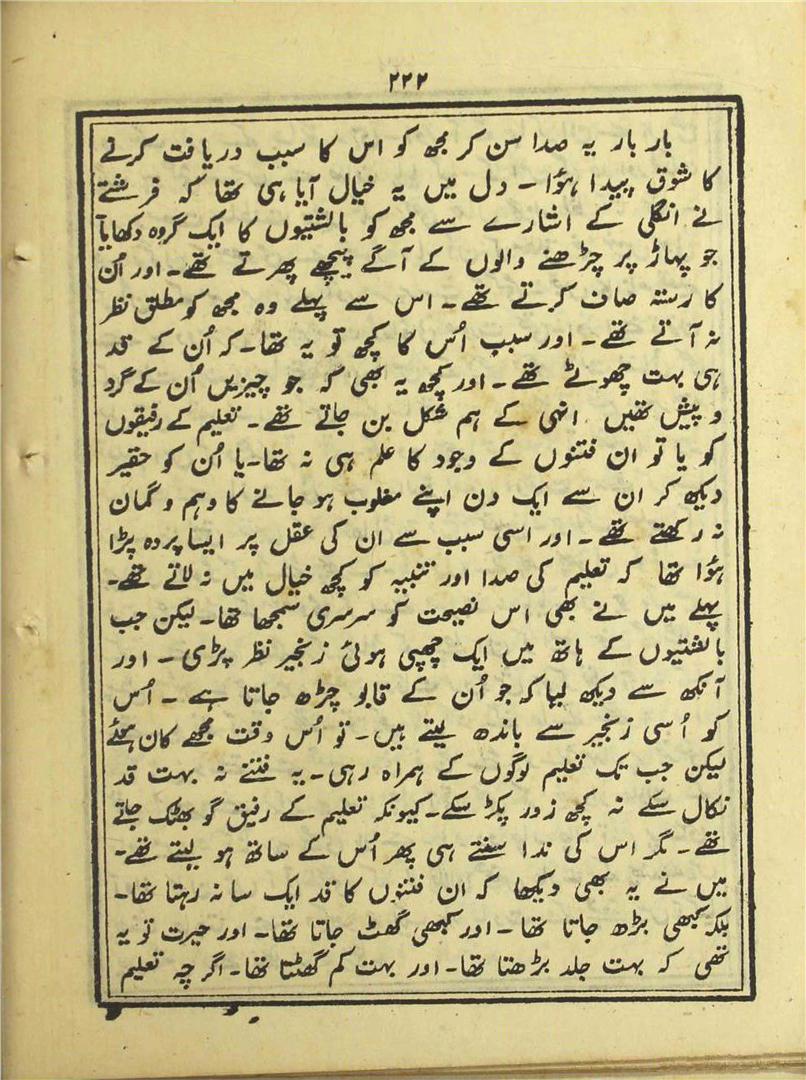 ۲۲۲
بار بار یہ صدا سن کر مجھ کو اس کا سبب دریافت کرنے
کا شوق پیدا ہؤا - دل میں یہ خیال آیا ہی تھا کہ فرشتے
نے انگلی کے اشارے سے مجھ کو بالشتیوں کا ایک گروہ دکھایا
جو پہاڑ پر چڑھنے والوں کے آگے پیچھے پھرتے تھے۔ اور اُن
کا رستہ صاف کرتے تھے۔ اس سے پہلے وہ مجھ کو مطلق نظر
نہ آتے تھے۔ اور سبب اُس کا کچھ تو یہ تھا۔ کہ اُن کے قد
ہی بہت چھوٹے تھے۔ اور کچھ یہ بھی کہ جو چیزیں اُن کے گرد
و پیش تھیں انہی کے ہم شکل بن جاتے تھے۔ تعلیم کے رفیقوں
کو یا تو ان فتنوں کے وجود کا علم ہی نہ تھا۔ یا اُن کو حقیر
دیکھ کر ان سے ایک دن اپنے مغلوب ہو جانے کا وہم و گمان
نہ رکھتے تھے۔ اور اسی سبب سے ان کی عقل پر ایسا پردہ پڑا
ہؤا تھا کہ تعلیم کی صدا اور تنبیہ کو کچھ خیال میں نہ لاتے تھے۔
پہلے میں نے بھی اس نصیحت کو سرسری سمجھا تھا۔ لیکن جب
بالشتیوں کے ہاتھ میں ایک چھپی ہوئی زنجیر نظر پڑی - اور
آنکھ سے دیکھ لیا کہ جو اُن کے قابو چڑھ جاتا ہے - اُس
کو اُسی زنجیر سے باندھ لیتے ہیں۔ تو اُس وقت مجھے کان ہوئے
لیکن جب تک تعلیم لوگوں کے ہمراہ رہی۔ یہ فتنے نہ بہت قد
نکال سکے نہ کچھ زور پکڑ سکے۔ کیونکہ تعلیم کے رفیق گو بھٹک جاتے
تھے۔ مگر اس کی ندا سنتے ہی پھر اُس کے ساتھ ہو لیتے تھے۔
میں نے یہ بھی دیکھا کہ ان فتنوں کا قد ایک سا نہ رہتا تھا۔
بلکہ کبھی بڑھ جاتا تھا - اور کبھی گھٹ جاتا تھا۔ اور حیرت تو یہ
تھی کہ بہت جلد بڑھتا تھا۔ اور بہت کم گھٹتا تھا۔ اگرچہ تعلیم